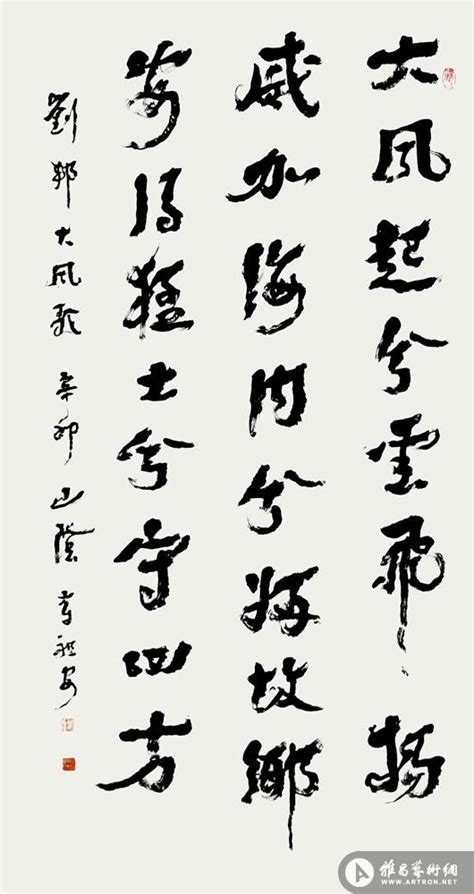 大風起兮雲飛揚
威加海内兮歸故鄉
安得猛士兮守四方
劉邦大風歌 辛卯 山陰
雅昌藝術網
WWW.ARTRON.NET